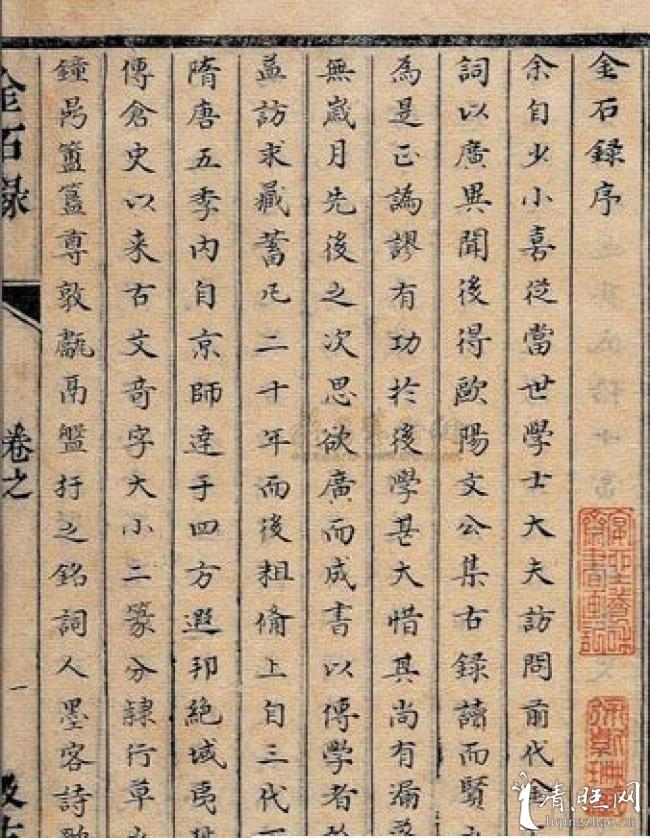 金石録序
余自少小喜從當世學士大夫訪問前代金
詞以廣異聞後得歐陽文公集古録讀而賢
為是正譌謬有功於後學甚大惜其尚有漏落
無歲月先後之次思欲廣而成書以傳學者於
益訪求藏蓄凡二十年而後粗備上自三代
隋唐五季内自京師達于四方遐邦絶域夷狄
傳倉史以来古文奇字大小二篆分隷行草
鐘鼎簠簋尊敦甗鬲盤杅之銘詞人墨客詩歌
金石録
卷之
一
汲古
清旺网
liqingzhao.net